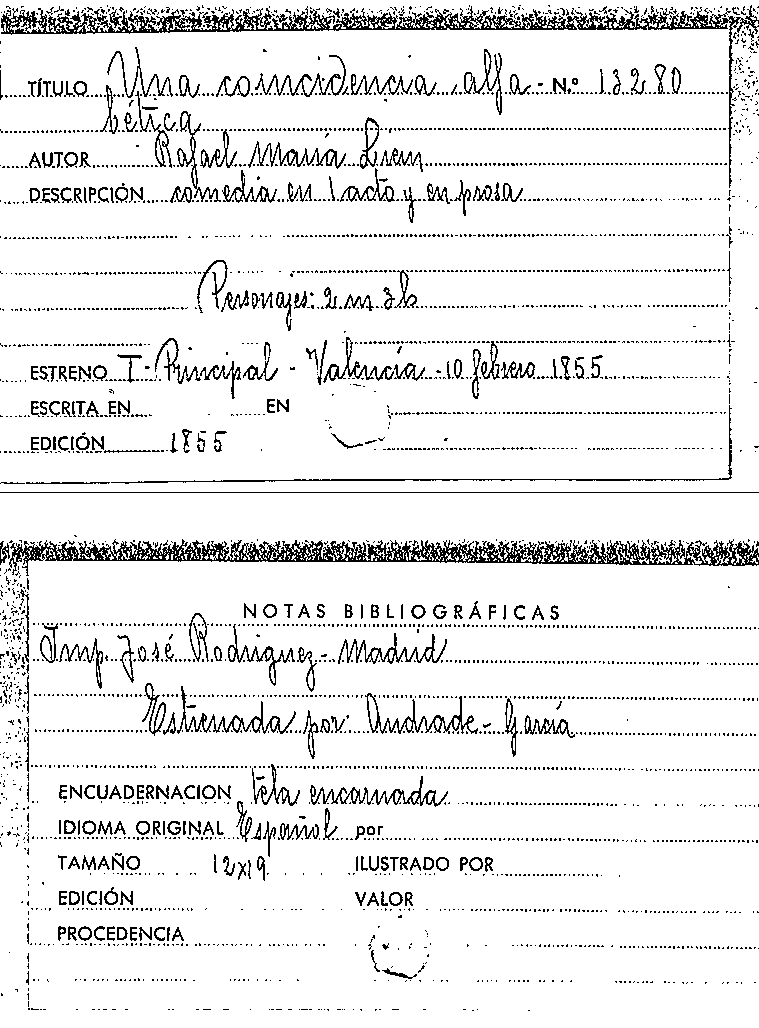 TÍTULO Una coincidencia alfa- N.º 13280
bética
AUTOR Rafael María Liern
DESCRIPCIÓN comedia en 1 acto y en prosa
Personajes: 2 m 3 h
ESTRENO T. Principal - Valencia - 10 febrero 1855
ESCRITA EN EN
EDICIÓN 1855
NOTAS BIBLIOGRÁFICAS
Imp. José Rodriguez - Madrid
Estrenada por: Andrade - García
ENCUADERNACION tela encarnada
IDIOMA ORIGINAL Español por
TAMAÑO 12x19 ILUSTRADO POR
EDICIÓN VALOR
PROCEDENCIA